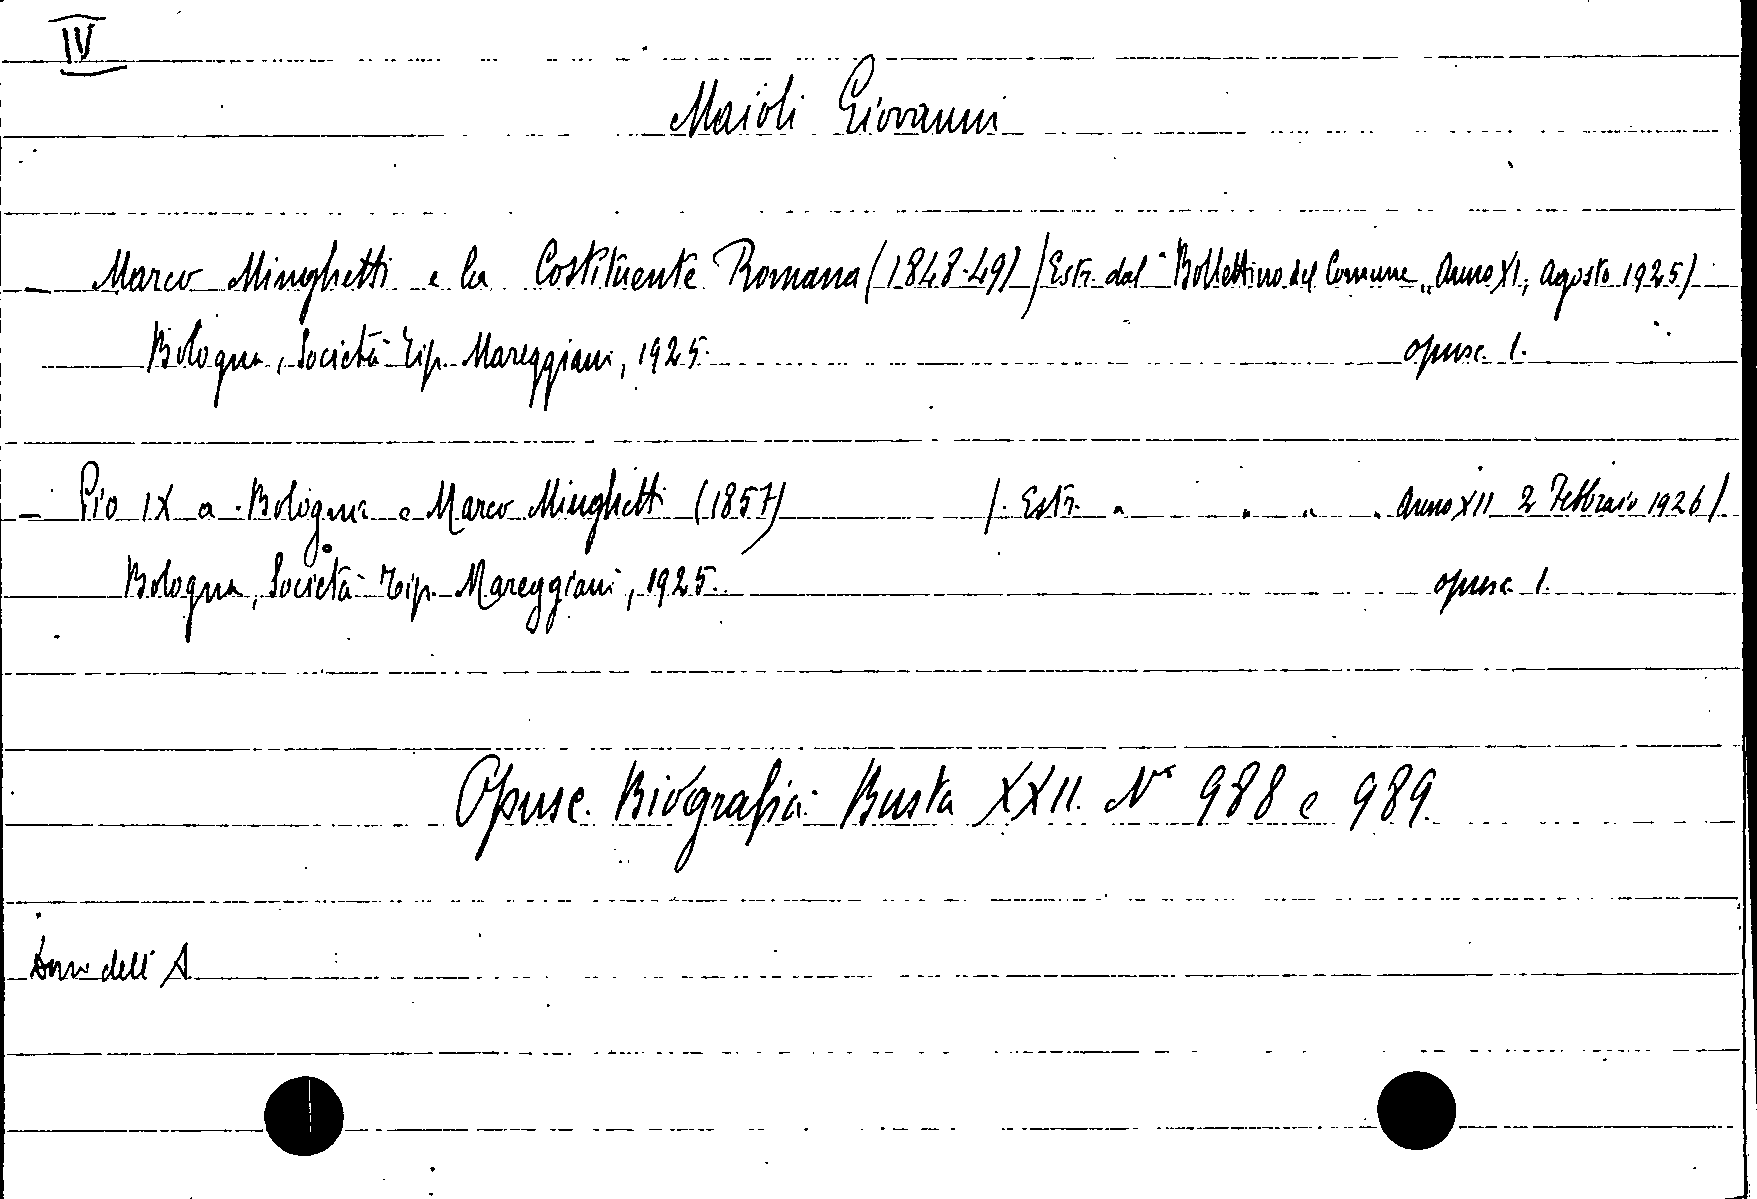 IV
Maioli Giovanni
- Marco Minghetti e la Costituente Romana (1848-49) / Estr. dal "Bollettino del Comune„ Anno XI, Agosto 1925/
Bologna, Società Tip. Mareggiani, 1925. opusc. 1.
- Pio IX a Bologna e Marco Minghetti (1857) /. Estr. " " " " Anno XII 2 Febbraio 1926/.
Bologna, Società Tip. Mareggiani, 1925. opusc. 1.
Opusc. Biografia: Busta XXII. Nⁱ 988 e 989.
Dono dell' A.